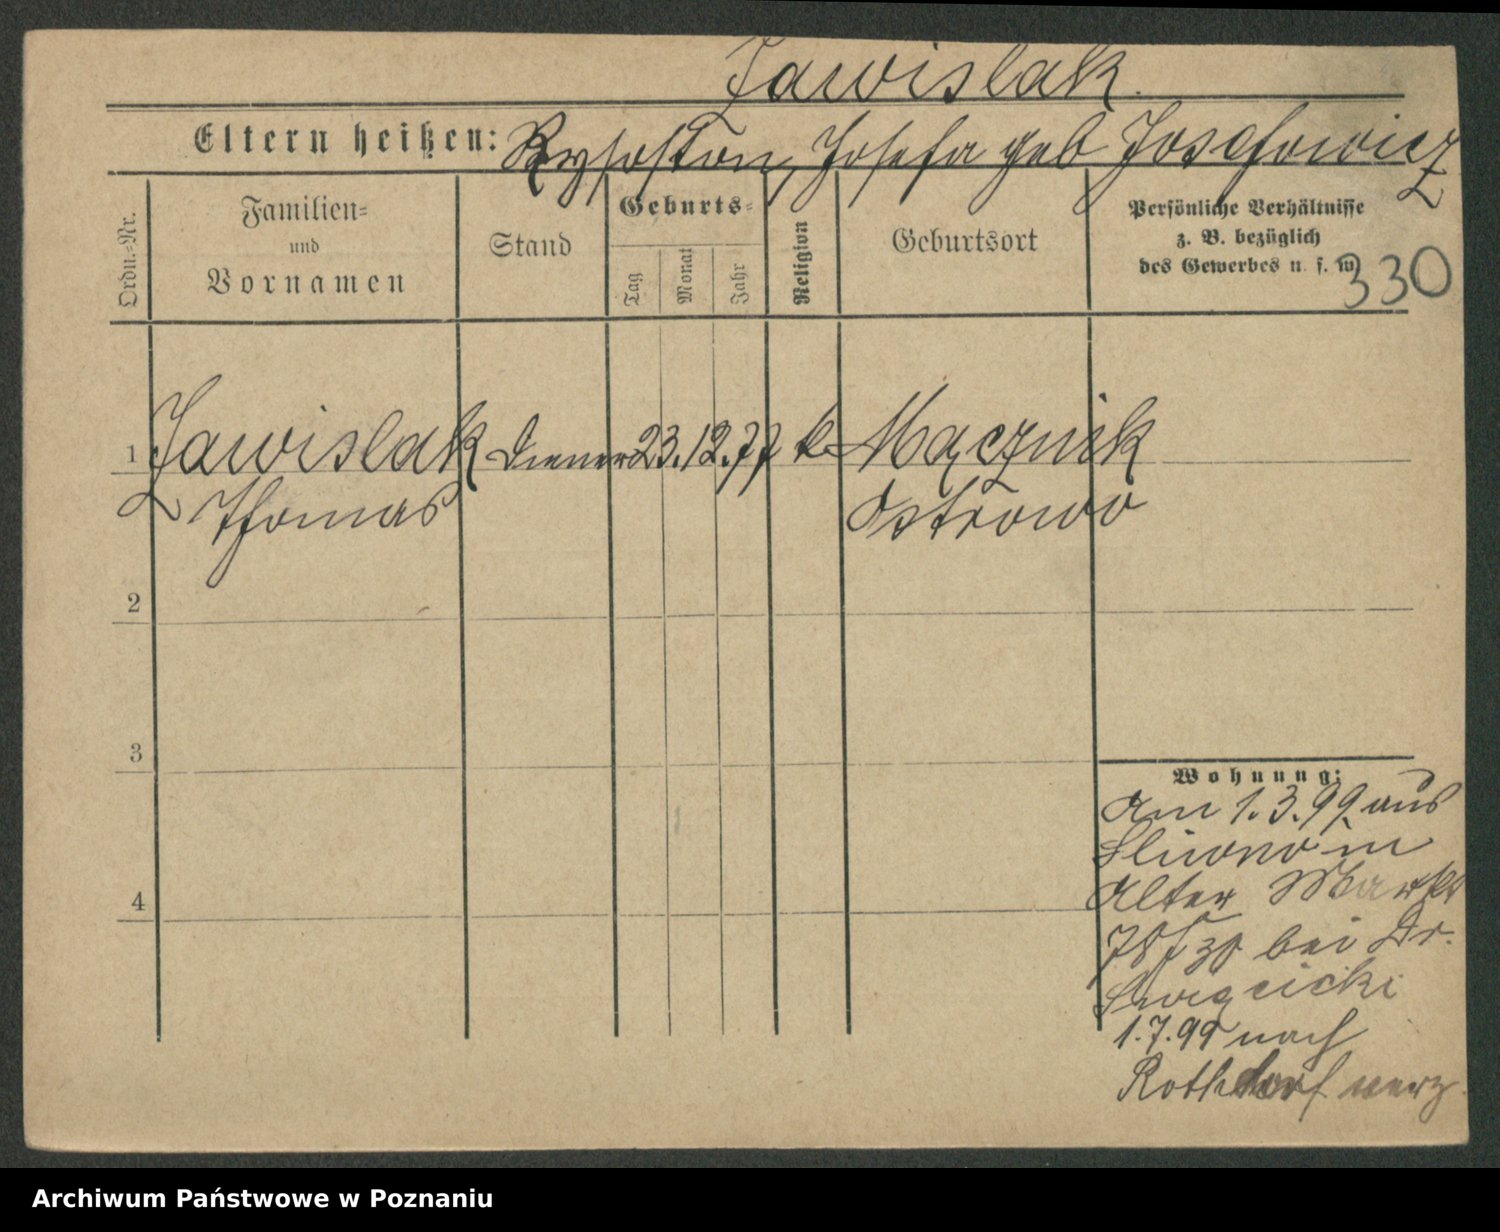 Jawislak.
Eltern heißen: Josefa geb Josefowicz
Ordn.-Nr.
Familien-
und
Vornamen
Stand
Geburts-
Tag
Monat
Jahr
Religion
Geburtsort
Persönliche Verhältnisse
z. B. bezüglich
des Gewerbes u. s. w.
330
1 Jawislak Diener 23. 12. 77 k. Mącznik
Thomas Ostrowo
2
3
4
Wohnung:
Am 1. 3. 99 aus
Sliwno in
Alter Markt
bei Dr.
Swięcicki
1. 7. 99 nach
Rothdorf verz.
Archiwum Państwowe w Poznaniu